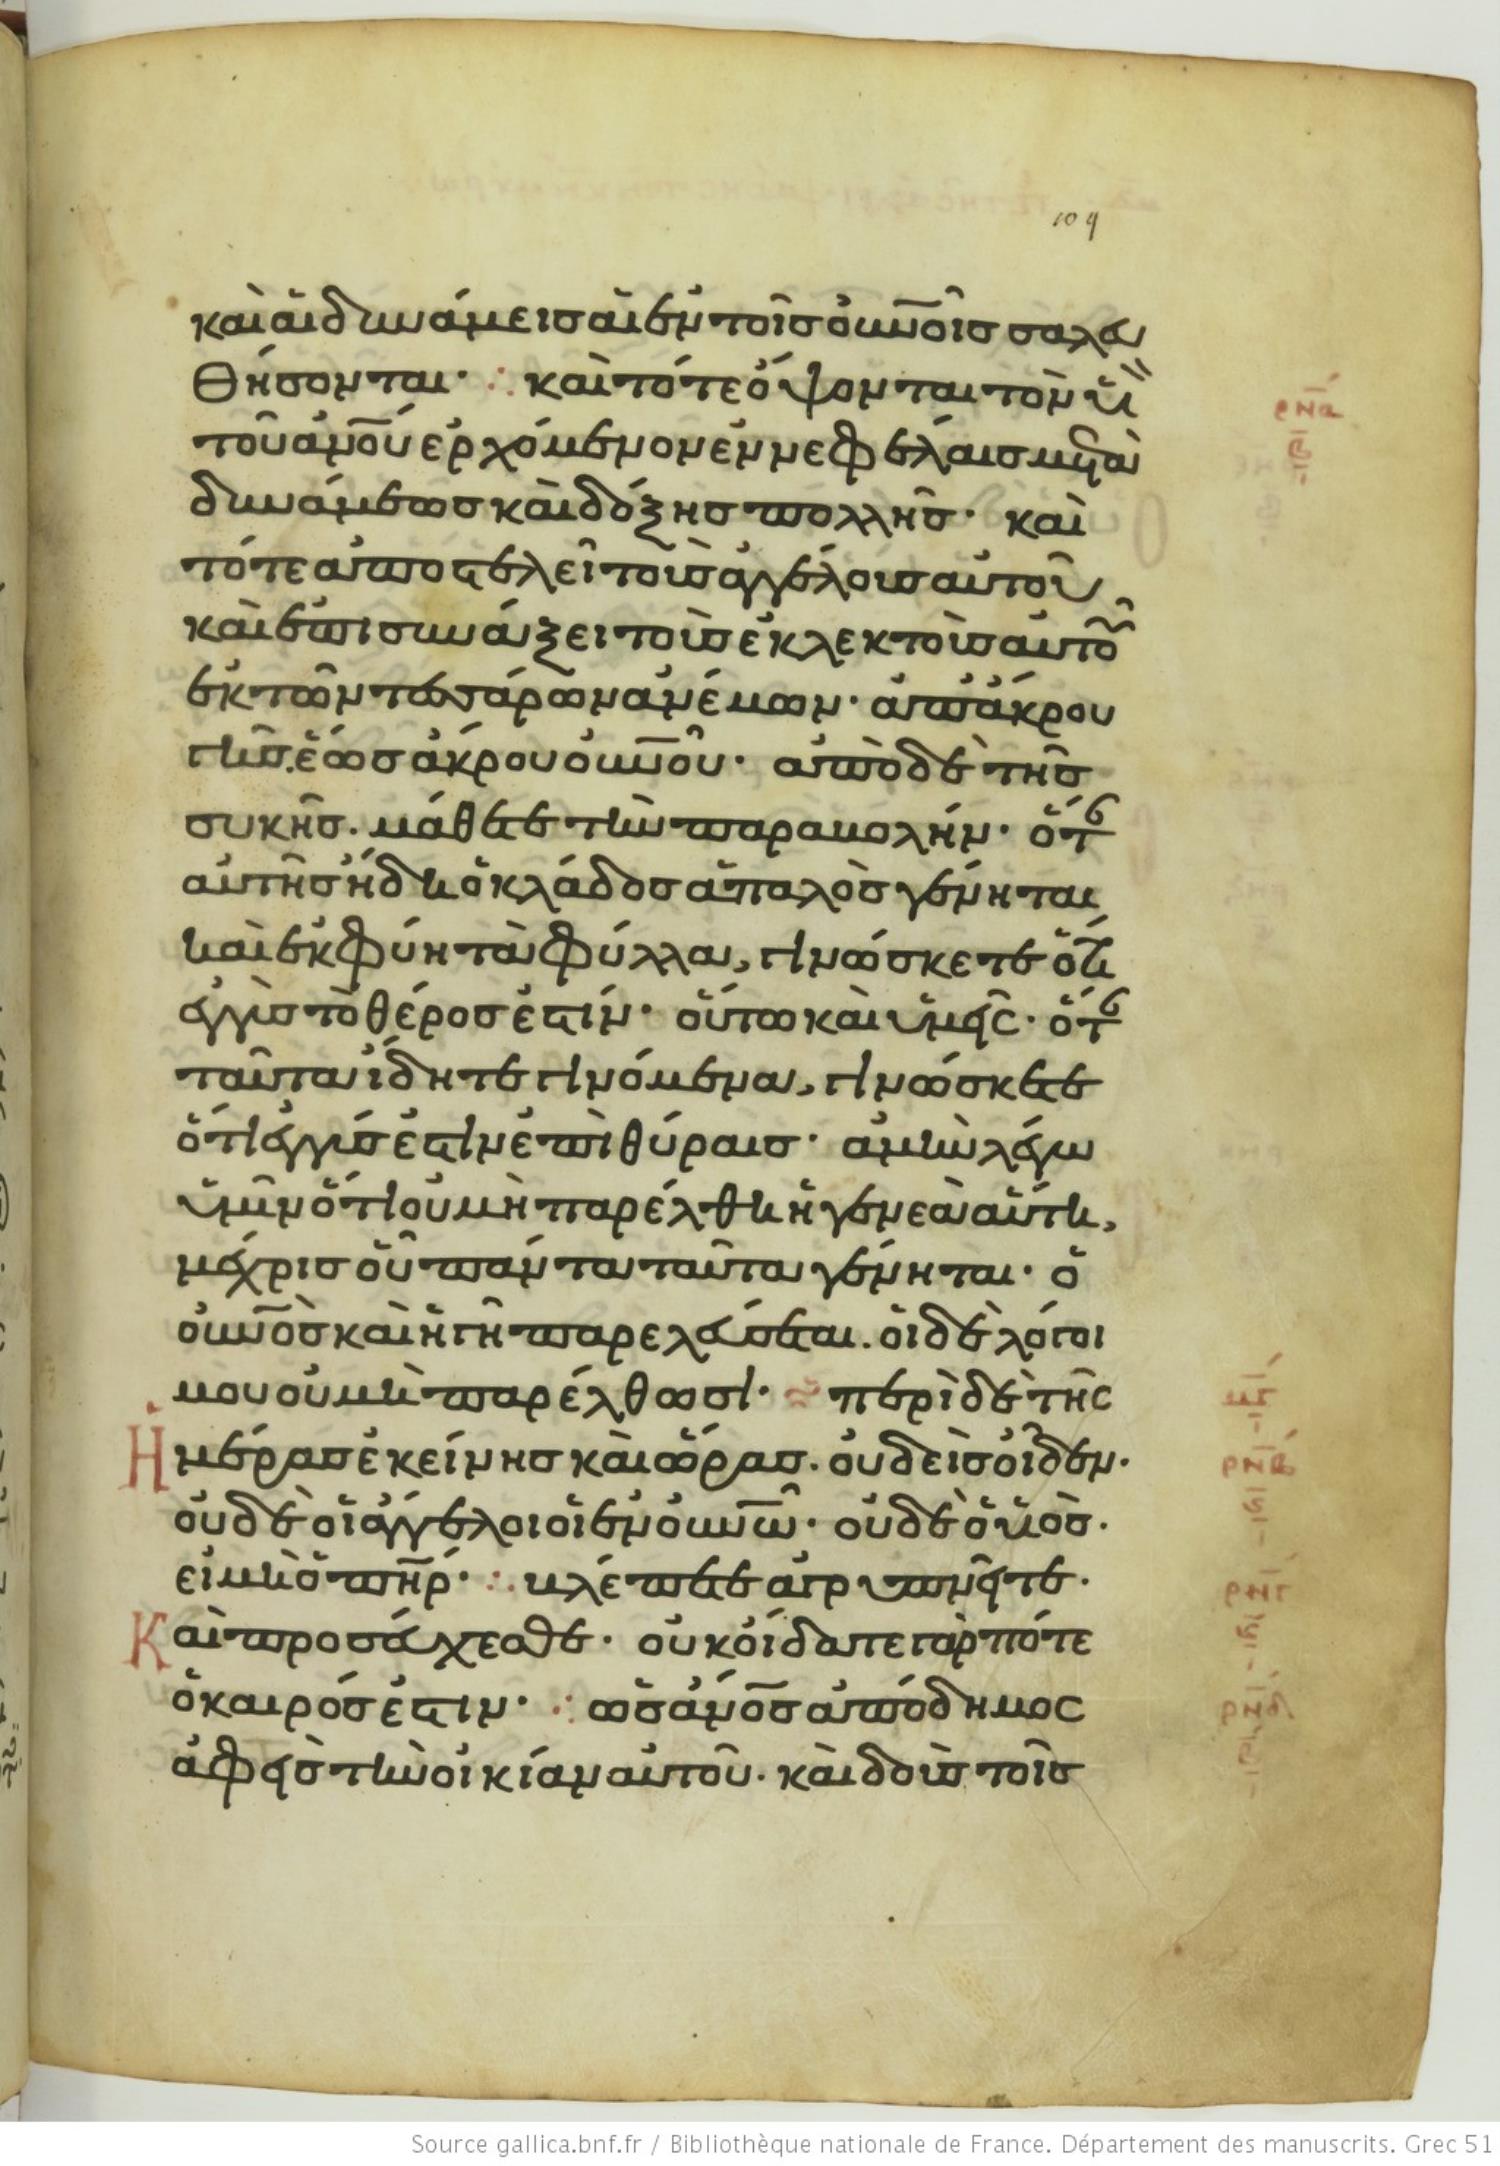 109
καὶ αἱ δυνάμεις αἱ ἐν τοῖς οὐνοῖς σαλευ
θήσονται· ∴ καὶ τότε ὄψονται τὸν ὑν
τοῦ ἀνοῦ ἐρχόμενον ἐν νεφέλαις μετὰ
δυνάμεως καὶ δόξης πολλῆς· καὶ
τότε ἀποστελεῖ τοὺς ἀγγέλους αὐτοῦ,
καὶ ἐπισυνάξει τοὺς ἐκλεκτοὺς αὐτοῦ
ἐκ τῶν τεσσάρων ἀνέμων· ἀπ ἄκρου
γῆς ἕως ἄκρου οὐνοῦ· ἀπὸ δὲ τῆς
συκῆς. μάθετε τὴν παραβολήν· ὅτε
αὐτῆς ἤδη ὁ κλάδος ἁπαλὸς γένηται
καὶ ἐκφύη τὰ φύλλα, γινώσκετε ὅτι
ἐγγὺς τὸ θέρος ἐστίν· οὕτω καὶ ὑμεῖς· ὅτε
ταῦτα ἴδητε γινόμενα, γινώσκετε
ὅτι ἐγγύς ἐστιν ἐπὶ θύραις· ἀμὴν λέγω
ὑμῖν ὅτι οὐ μὴ παρέλθη ἡ γενεὰ αὕτη,
μέχρις οὗ πάντα ταῦτα γένηται· ὁ
οὐνὸς καὶ ἡ γῆ παρελεύσεται. οἱ δὲ λόγοι
μου οὐ μὴ παρέλθωσι· περὶ δὲ τῆς
Ἡμέρας ἐκείνης καὶ ὥρας. οὐδεὶς οἶδεν.
οὐδὲ οἱ ἄγγελοι οἱ ἐν οὐνω· οὐδὲ ὁ υἱὸς.
εἰ μὴ ὁ πηρ· ∴ βλέπετε ἀγρυπνεῖτε.
Καὶ προσεύχεσθε· οὐκ οἴδατε γὰρ πότε
ὁ καιρός ἐστιν· ∴ ὡς ἄνος ἀπόδημος
ἀφεὶς τὴν οἰκίαν αὐτοῦ. καὶ δοὺς τοῖς
ρνα
ρνβ
ρνγ
ρνδ
Source gallica.bnf.fr / Bibliothèque nationale de France. Département des manuscrits. Grec 51